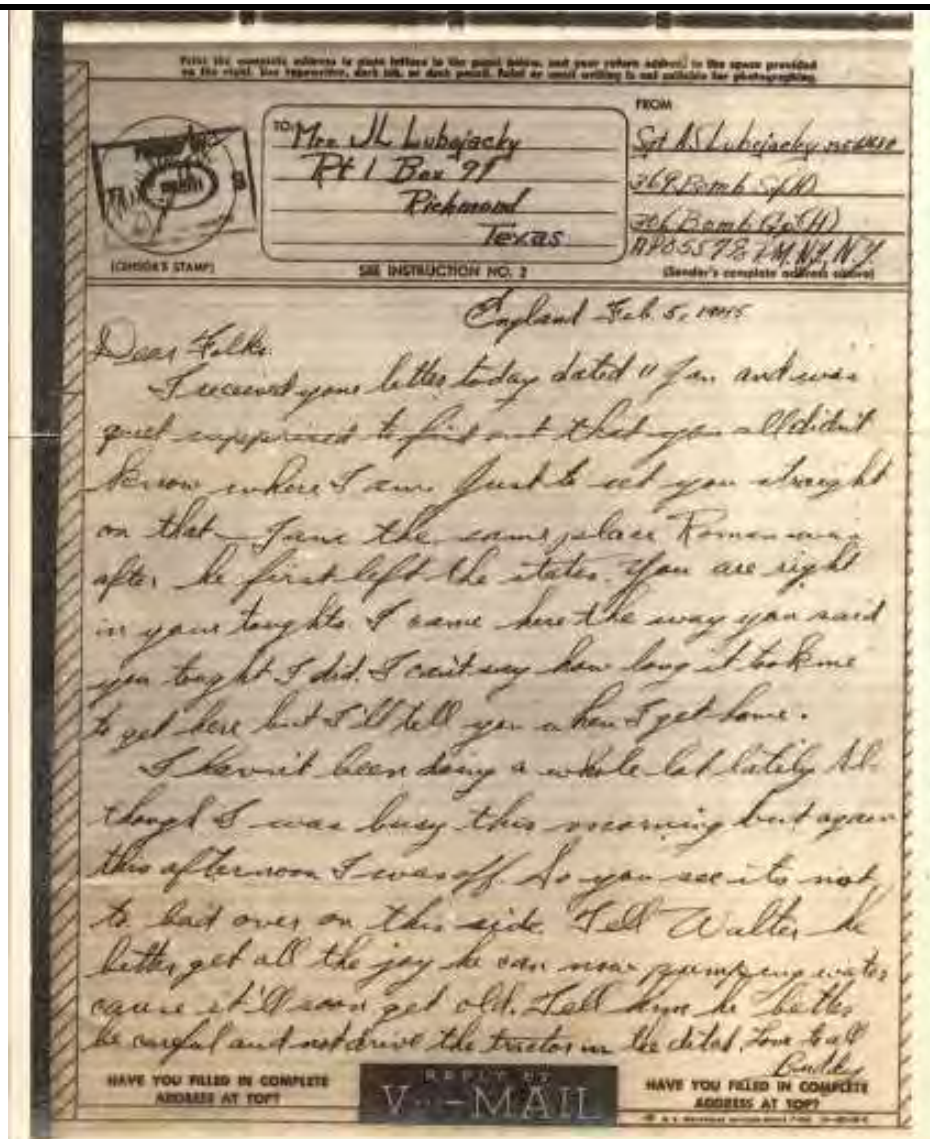 Print the complete address in plain letters in the panel below, and your return address in the space provided
on the right. Use typewriter, dark ink, or dark pencil. Faint or small writing is not suitable for photographing.
FROM
TO: Mrs JL Lubojacky
Rt 1 Box 97
Richmond
Texas
Sgt A.S. Lubojacky
369 Bomb Sq (H)
306 Bomb Gp (H)
APO 557 % P.M. N.Y. N.Y.
(CENSOR'S STAMP)
SEE INSTRUCTION NO. 2
(Sender's complete address above)
England Feb. 5, 1945
Dear Folks.
I received your letter today dated 11 Jan and was
quiet supprised to find out that you all didn't
know where I am. Just to set you straight
on that I am the same place Roman was
after he first left the states. You are right
in your toughts. I came here the way you said
you tought I did. I can't say how long it took me
to get here but I'll tell you when I get home.
I havn't been doing a whole lot lately Al-
though I was busy this morning but again
this afternoon I was off. So you see its not
to bad over on this side. Tell Walter he
better get all the joy he can now pumping water
cause it'll soon get old. Tell him he better
be careful and not drive the tractor in the ditch. Love to all
Buddy
HAVE YOU FILLED IN COMPLETE
ADDRESS AT TOP?
REPLY BY
V···-MAIL
HAVE YOU FILLED IN COMPLETE
ADDRESS AT TOP?